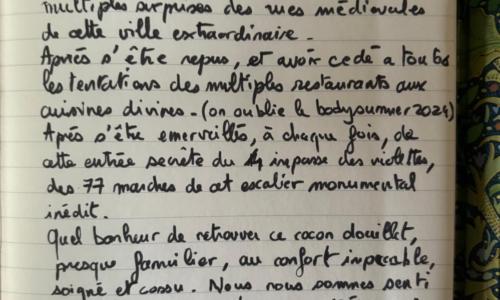 multiples surprises des rues médiévales
de cette ville extraordinaire.
Après s'être repus, et avoir cédé a toutes
les tentations des multiples restaurants aux
cuisines divines. (on oublie le bodysummer 2024)
Après s'être émerveillés, à chaque fois, de
cette entrée secrète du 4 impasse des violettes,
des 77 marches de cet escalier monumental
inédit.
Quel bonheur de retrouver ce cocon douillet,
presque familier, au confort impecable,
soigné et cossu. Nous nous sommes senti